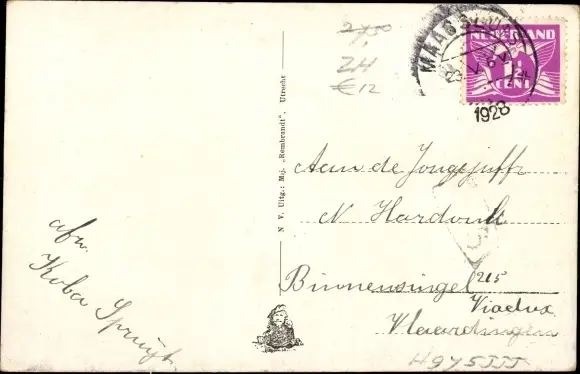 27,50
ZH
€ 12
MAASSLUIS
NEDERLAND
1½
CENT
1928
N V. Uitg.: Mij. „Rembrandt”, Utrecht
Aan de Jongejuffr
N Hardonk
Binnensingel 215
Viadux
Vlaardingen
afz.
Koba Spruyt